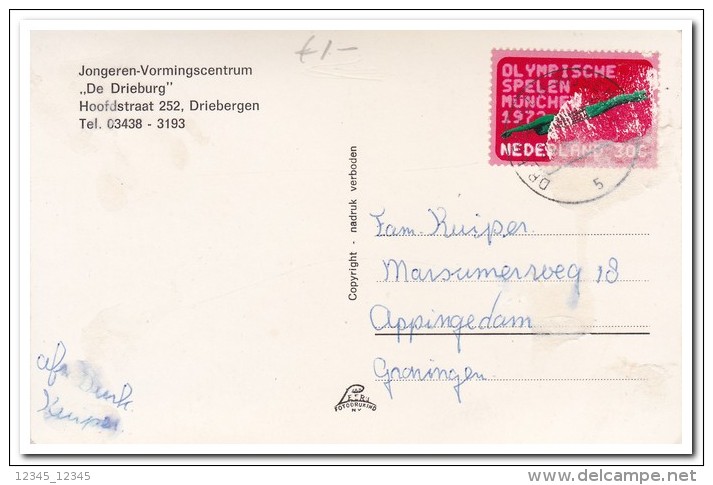 €1.-
Jongeren-Vormingscentrum
„De Drieburg"
Hoofdstraat 252, Driebergen
Tel. 03438 - 3193
OLYMPISCHE
SPELEN
MÜNCHEN
1972
NEDERLAND 30c
5
Copyright - nadruk verboden
Fam. Kuiper.
Marsumerweg 18
Appingedam
Groningen.
afz
Kuiper.
FOTODRUKIND
N.V.
12345_12345
©delcampe.net